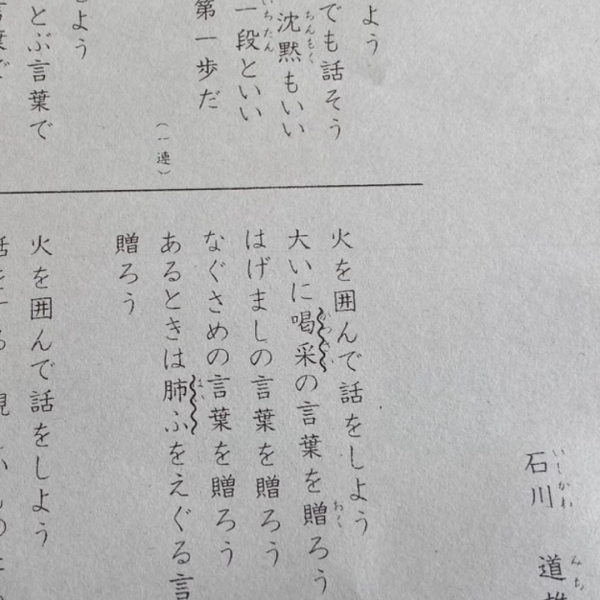 石川 道
よう
でも話そう
沈黙もいい
一段といい
第一歩だ
(一連)
よう
とぶ言葉で
言葉で
火を囲んで話をしよう
大いに喝采の言葉を贈ろう
はげましの言葉を贈ろう
なぐさめの言葉を贈ろう
あるときは肺ふをえぐる言
贈ろう
火を囲んで話をしよう